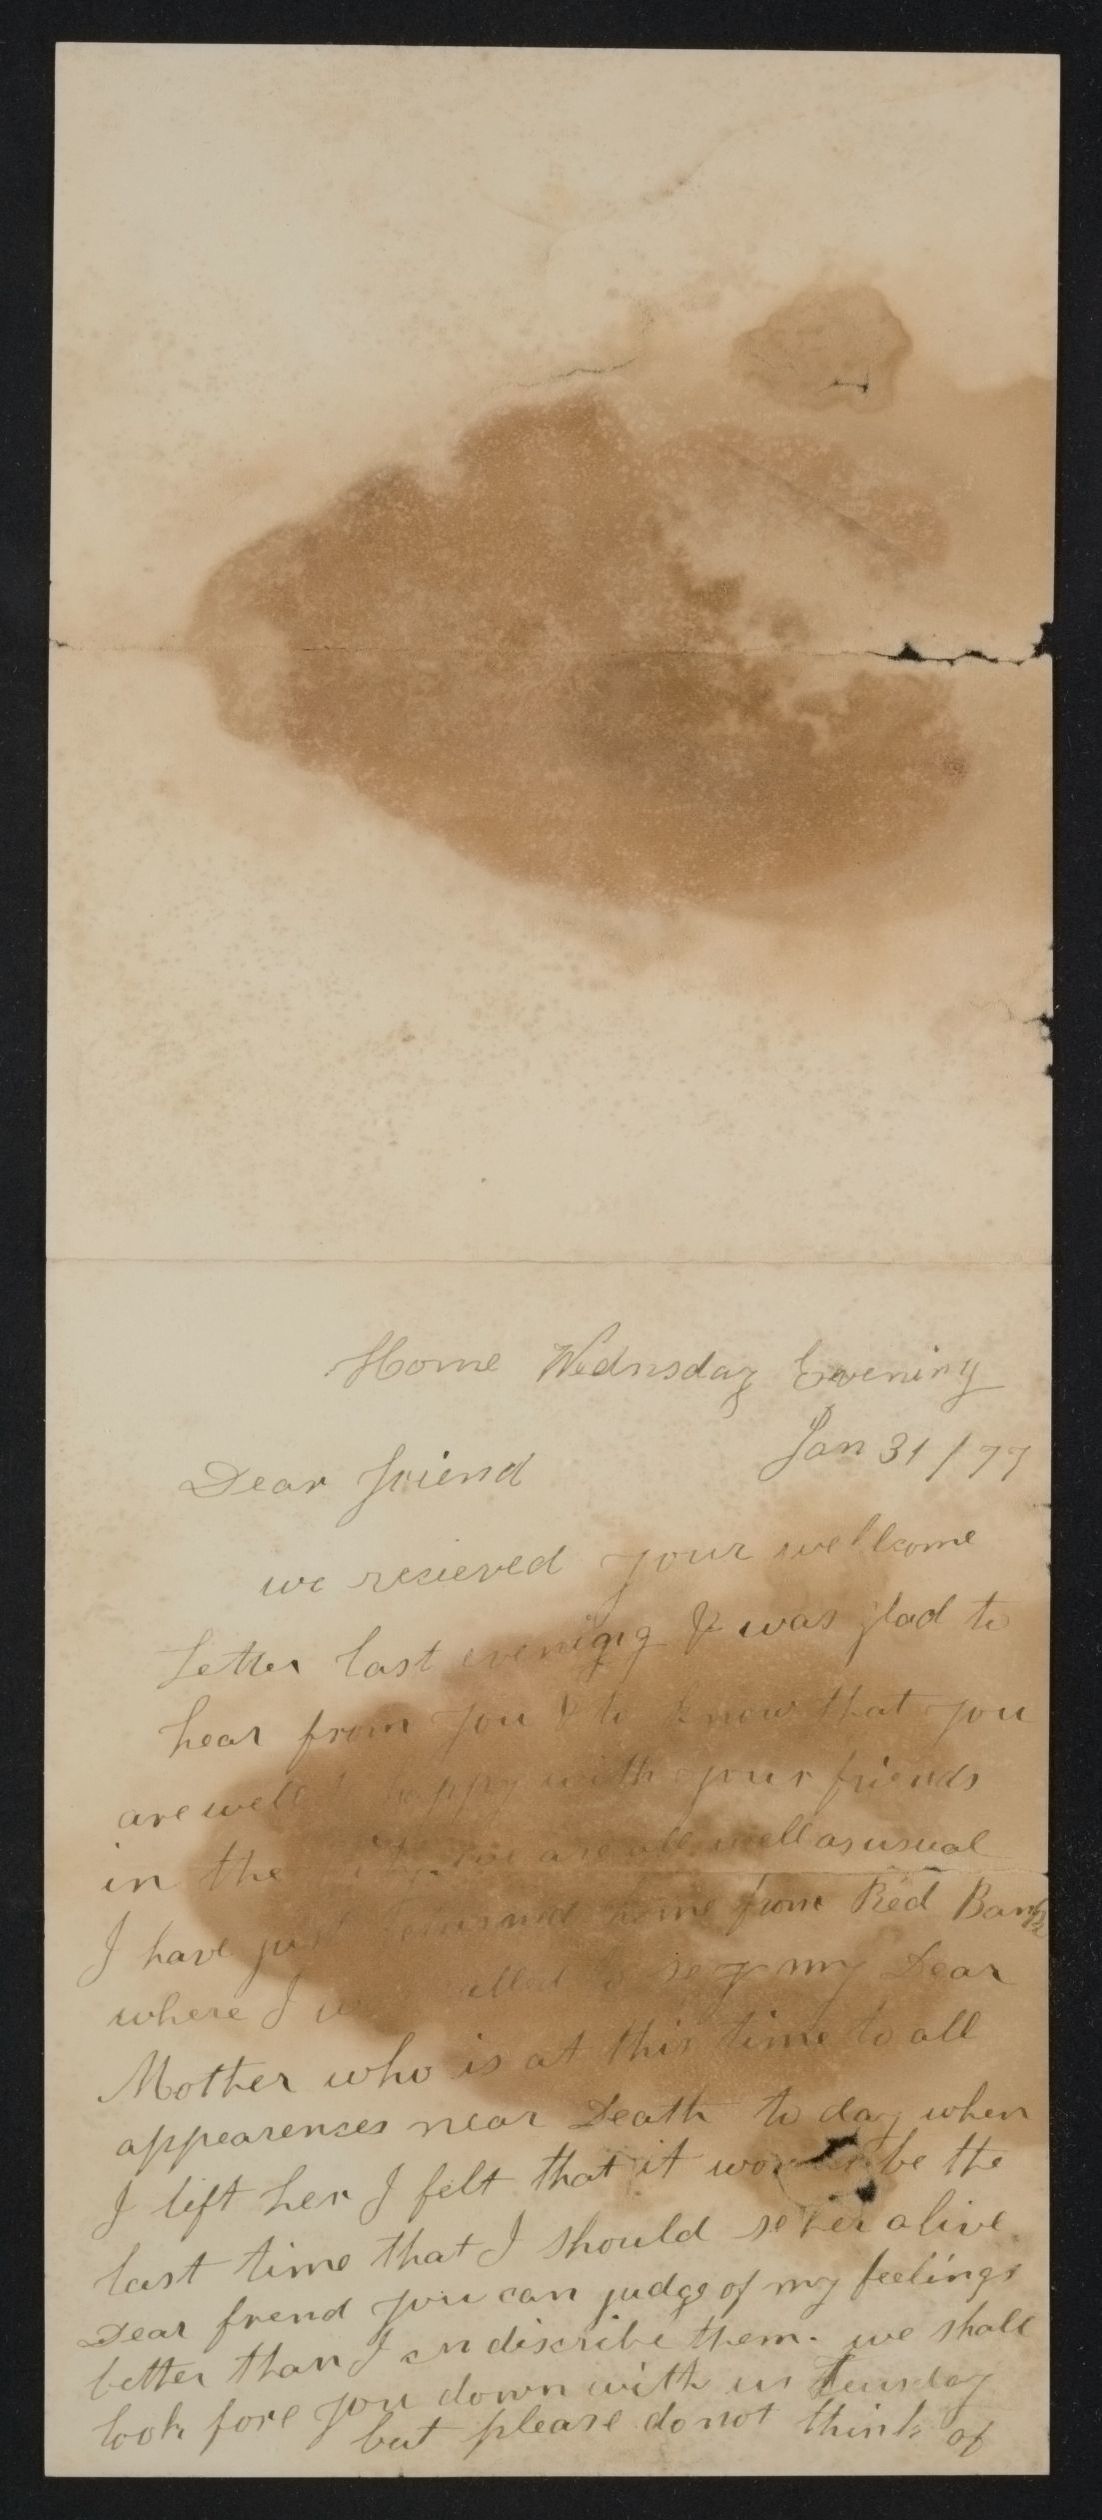 Home Wednsday Evening
Jan 31/77
Dear friend
we recieved your wellcome
Letter last evening & was glad to
hear from you & to know that you
are well & happy with your friends
in the city. we are all well as usual
I have just returned home from Red Bank
where I was called to se my Dear
Mother who is at this time to all
appearences near Death to day when
I lift her I felt that it would be the
last time that I should se her alive.
Dear frend you can judge of my feelings
better than I cn discribe them. we shall
look fore you down with us Teusday
but please do not think of